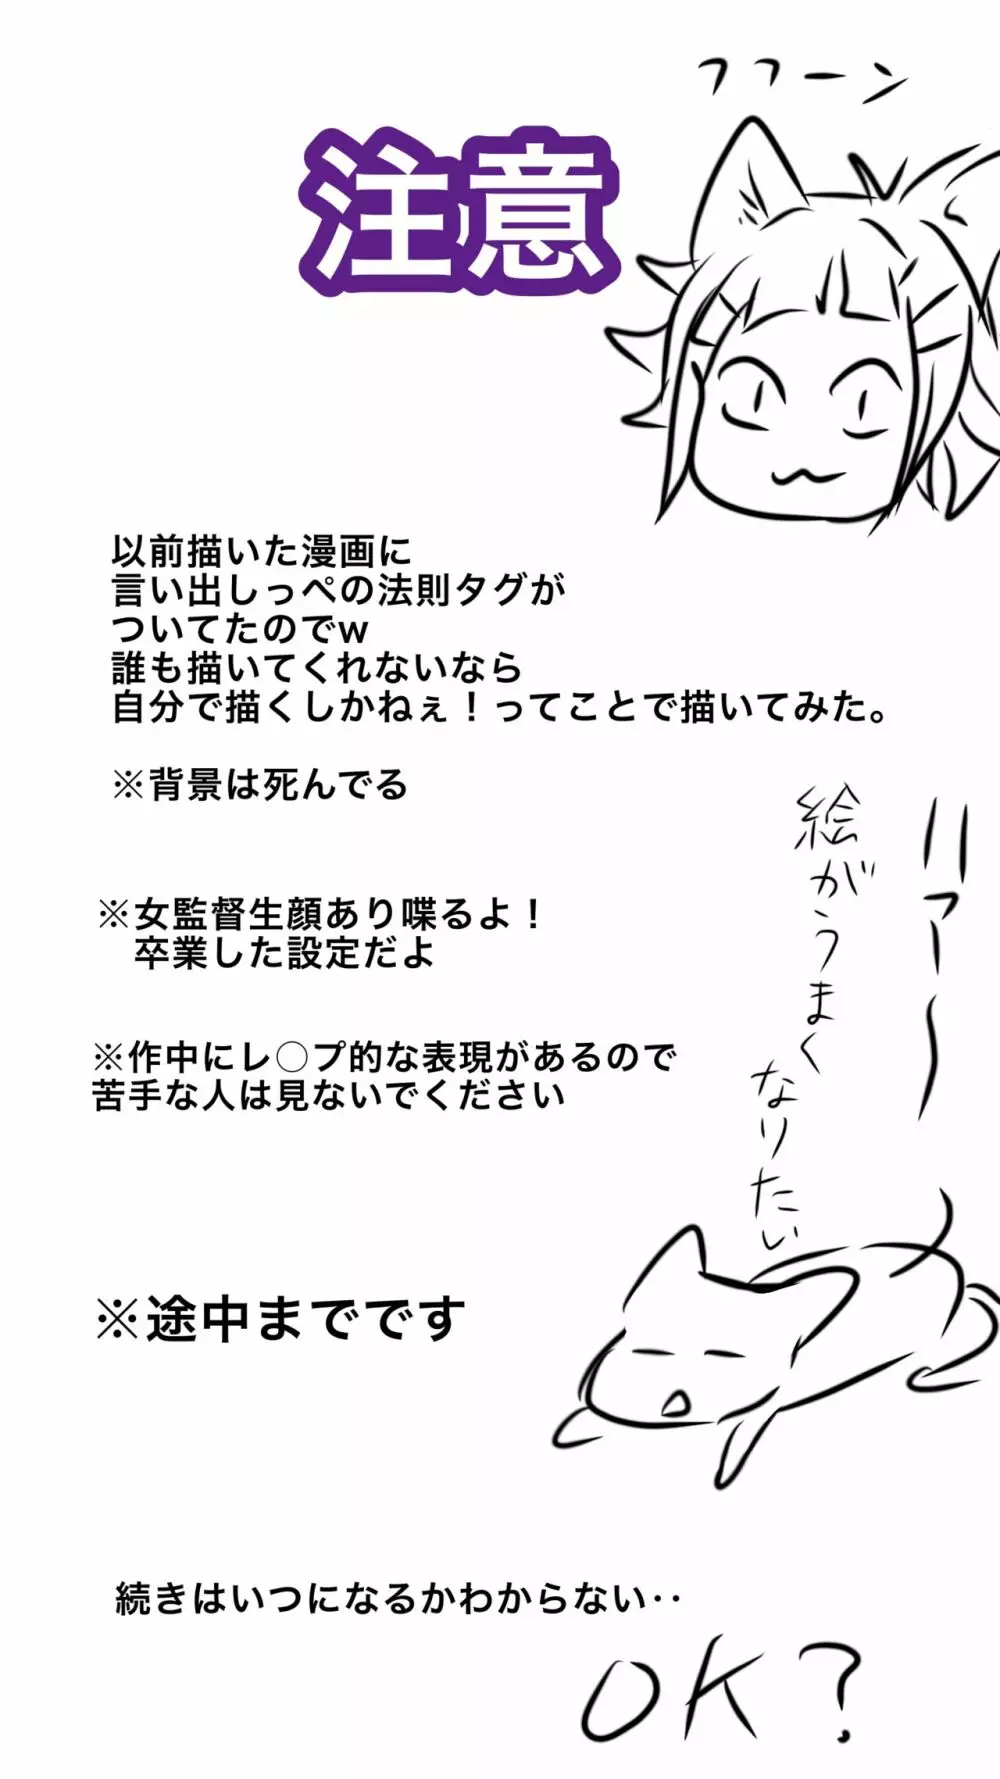 フフーン
注意
以前描いた漫画に
言い出しっぺの法則タグが
ついてたのでw
誰も描いてくれないなら
自分で描くしかねぇ！ってことで描いてみた。
※背景は死んでる
※女監督生顔あり喋るよ！
卒業した設定だよ
※作中にレ〇プ的な表現があるので
苦手な人は見ないでください
絵がうまく
なりたい
※途中までです
続きはいつになるかわからない‥
OK?